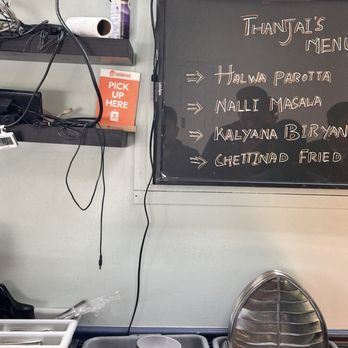 THANJAI'S
MENU
⇒ HALWA PAROTTA
⇒ NALLI MASALA
⇒ KALYANA BIRYAN
⇒ CHETTINAD FRIED
PICK
UP
HERE